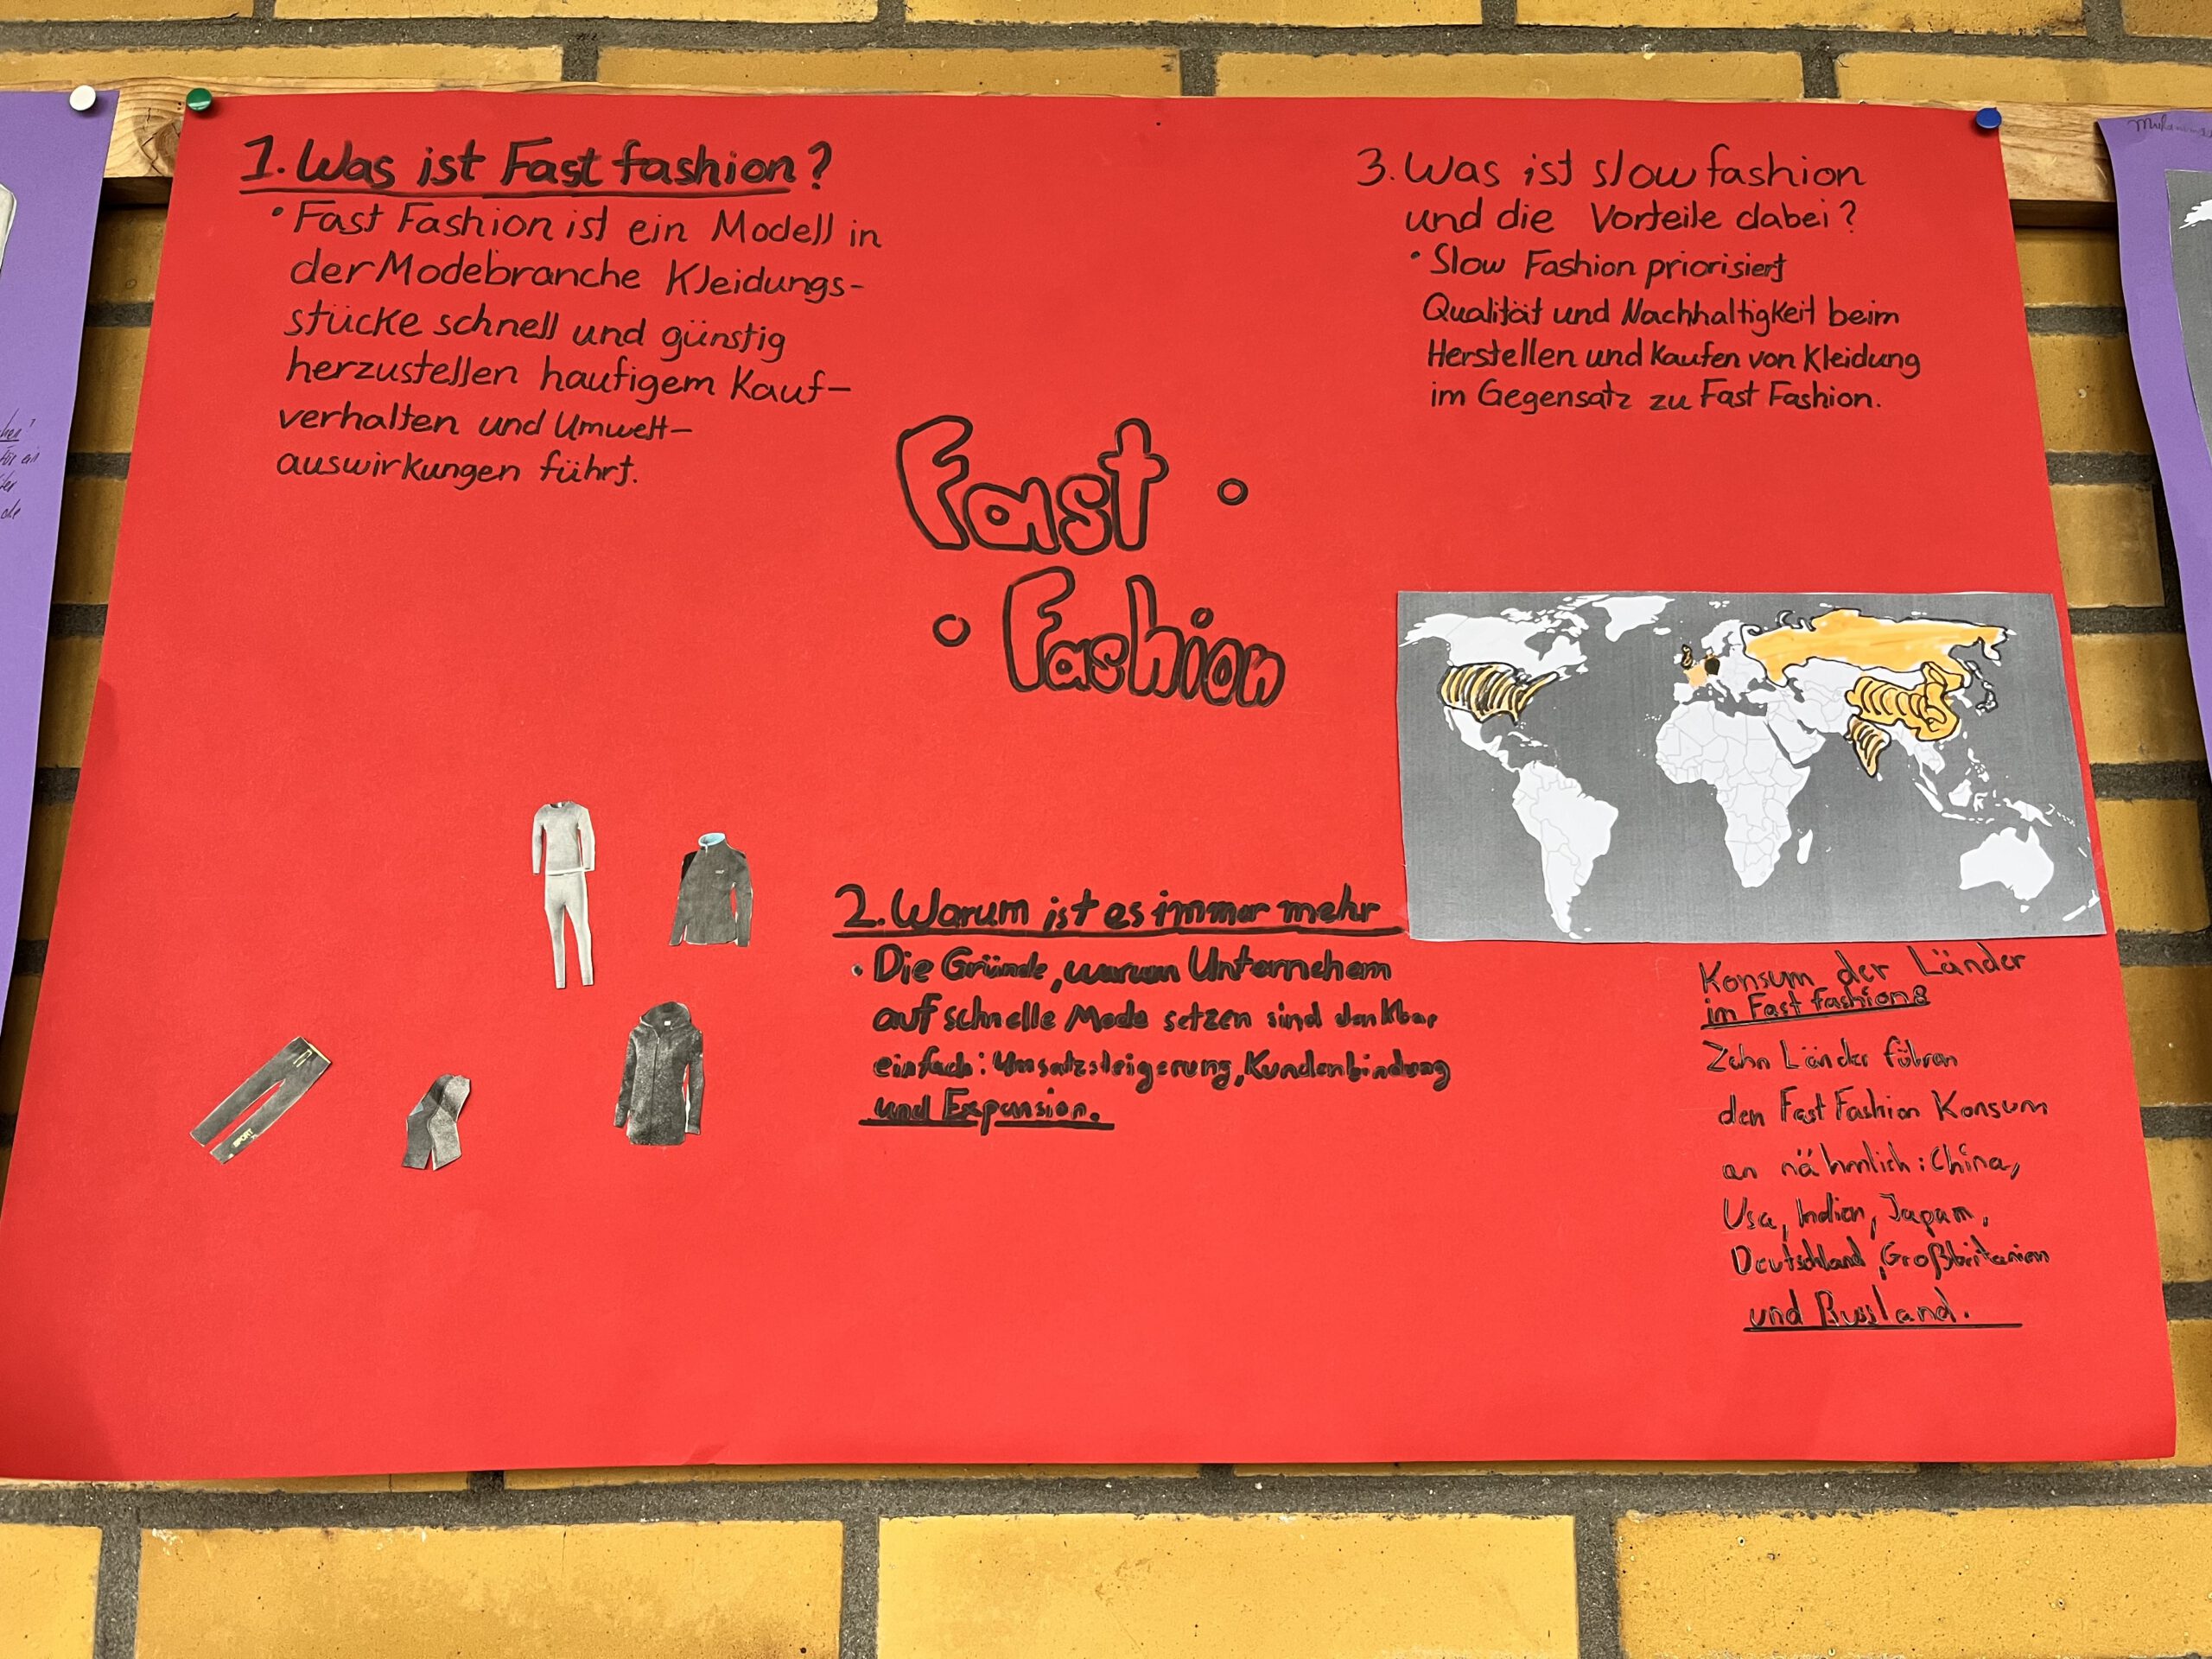 1. Was ist Fast fashion?
• Fast Fashion ist ein Modell in
der Modebranche Kleidungs-
stücke schnell und günstig
herzustellen haufigem Kauf-
verhalten und Umwelt-
auswirkungen führt.
Fast •
• Fashion
2. Warum ist es immer mehr
• Die Gründe, warum Unternehem
auf schnelle Mode setzen sind denkbar
einfach: Umsatzsteigerung, Kundenbindung
und Expansion.
3. Was ist slow fashion
und die Vorteile dabei?
• Slow Fashion priorisiert
Qualität und Nachhaltigkeit beim
Herstellen und Kaufen von Kleidung
im Gegensatz zu Fast Fashion.
Konsum der Länder
im Fast fashion:
Zehn Länder führen
den Fast Fashion Konsum
an nähmlich: China,
Usa, Indien, Japan,
Deutschland, Großbritanien
und Russland.
SPORT